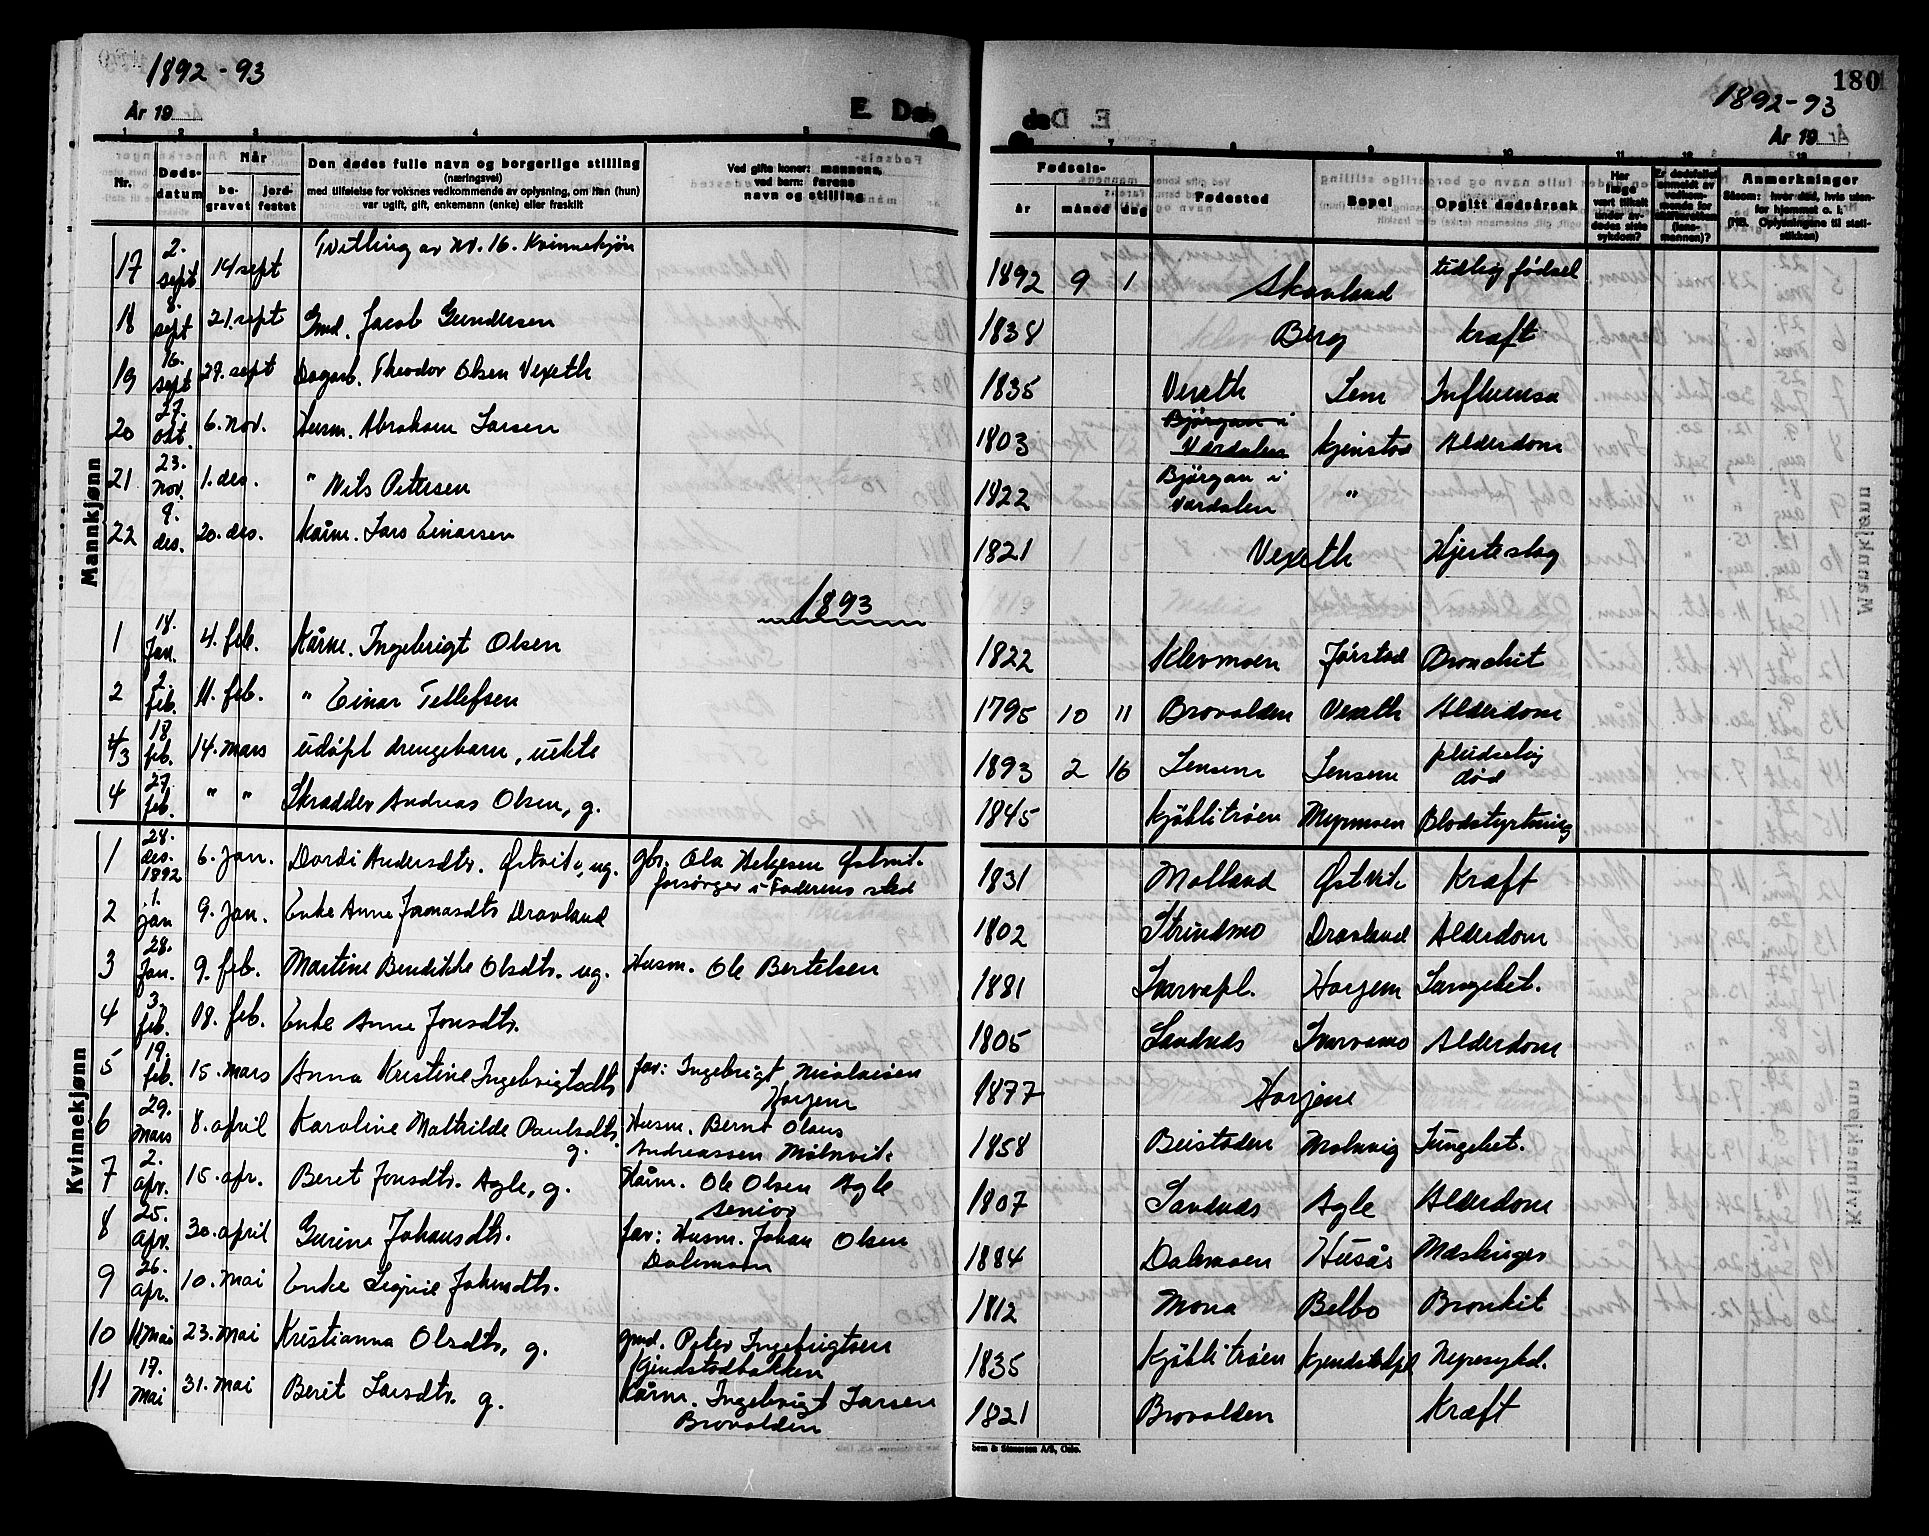 1892-93
År 19
E. Dø
Nr.
Døds-
datum
Når
be-
gravet
jord-
festet
Den dødes fulle navn og borgerlige stilling
(næringsvei)
med tilføielse for voksnes vedkommende av oplysning, om han (hun)
var ugift, gift, enkemann (enke) eller fraskilt
Ved gifte koner: mannens,
ved barn: farens
navn og stilling
Mannkjønn
17 2. sept 14 sept Tvilling av nr. 16. Kvinnekjøn
18 8. sept 21. sept Gmd. Jacob Gundersen
19 16. sept 29. sept Dagarb. Theodor Olsen Vexeth
20 27. okt. 6. nov. Husm. Abraham Larsen
21 23. nov. 1. des. " Nils Petersen
22 9. des. 20. des. Kårm. Lars Einarsen
1893
1 18. Jan. 4. feb. Kårm. Ingebrigt Olsen
2 2. feb. 11. feb. " Einar Tellefsen
4/3 18 feb. 14. mars udøpt drengebarn, uekte
4 27. feb. " " Skrædder Andreas Olsen, g.
Kvinnekjønn
1 28. des. 1892 6. Jan. Dordi Andersdtr. Østvik, ug. gbr. Ola Helgesen Østvik.
forsörger i Faderens sted
2 1. jan 9. Jan. Enke Anne Jonasdtr Dravland
3 28. Jan. 9. feb. Martine Bendikke Olsdtr. ug. Husm. Ole Bertelsen
4 3. feb. 18. feb. Enke Anne Jonsdtr.
5 19. feb. 15. mars Anna Kristine Ingebrigtsdtr far: Ingebrigt Nicolaisen
Horjem
6 29. mars 8. april Karoline Mathilde Paulsdtr. g. Husm. Bernt Olaus
Andreassen Molnvik.
7 2. apr. 15. apr. Beret Jonsdtr. Agle, g. Kårm. Ole Olsen Agle
senior
8 25. apr. 30. april Gurine Johansdtr. far: Husm. Johan Olsen
Dalemoen
9 26. apr. 10. mai Enke Sigrid Johnsdtr.
10 11 Mai 23. mai Kristianna Olsdtr, g. gmd. Peter Ingebrigtsen
Gjendstadbakken
11 17. Mai 31. mai Berit Larsdtr. g. Kårm. Ingebrigt Larsen
Brovolden
180
1892-93
År 19
Fødsels-
år
måned
dag
Fødested
Bopel
Opgitt dødsårsak
Har
læge
vært tilkalt
under av-
dødes siste
sykdom?
Er dødsfallet
anmeldt av
vedkom-
mende for
skifteretten
(lens-
mannen)?
Anmerkninger
Såsom: hvor død, hvis uten-
for hjemmet o. l.
(NB. Oplysningene til stati-
stikken)
1892 9 1 Skavland tidlig fødsel
1838 Berg Kræft
1835 Vexeth Lem Influensa
1803 Björgan i Værdalen Kjenstad Alderdom
1822 Björgan i Værdalen "
1821 Vexeth Hjerteslag
1822 Klevmoen Jørstad Bronchit
1795 10 11 Brovolden Vexeth Alderdom
1893 2 16 Sensem Sensem pludselig død
1845 Kjöblitröen Myrmoen Blodstyrtning
1831 Molland Østvik Kræft
1802 Strindmo Dravland Alderdom
1881 Snarvapl. Horjem Lungebet.
1805 Sandnes Snarvamo Alderdom
1877 Horjem
1858 Beistaden Molnvig Lungebet.
1807 Sandnes Agle Alderdom
1884 Dalemoen Husås Mæslinger
1812 Mona Belbo Bronkit
1835 Kjöblitröen Kjendstadpl Nyresykd.
1821 Brovolden Kræft
Mannkjønn
Kvinnekjønn
bem & Stenersen A/S, Oslo.